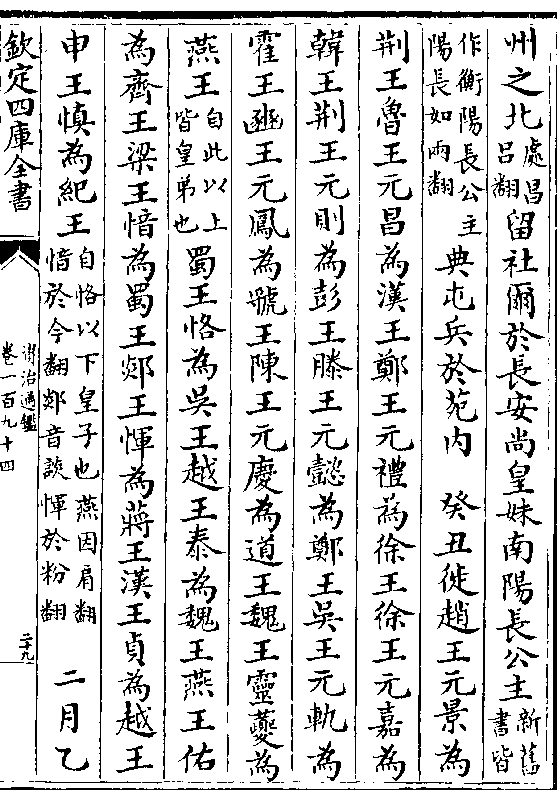 州之北處昌呂翻留社爾於長安尚皇妹南陽長公主新舊書皆
作衡陽長公主陽長如兩翻典屯兵於苑内　癸丑徙趙王元景為
荆王魯王元昌為漢王鄭王元禮為徐王徐王元嘉為
韓王荆王元則為彭王滕王元懿為鄭王吳王元軌為
霍王豳王元鳳為虢王陳王元慶為道王魏王靈夔為
燕王自此以上皆皇弟也蜀王恪為吳王越王泰為魏王燕王佑
為齊王梁王愔為蜀王郯王惲為蔣王漢王貞為越王
申王慎為紀王自恪以下皇子也燕因肩翻愔於今翻郯音談惲於粉翻　二月乙
欽定四庫全書
資治通鑑
卷一百九十四
二十九